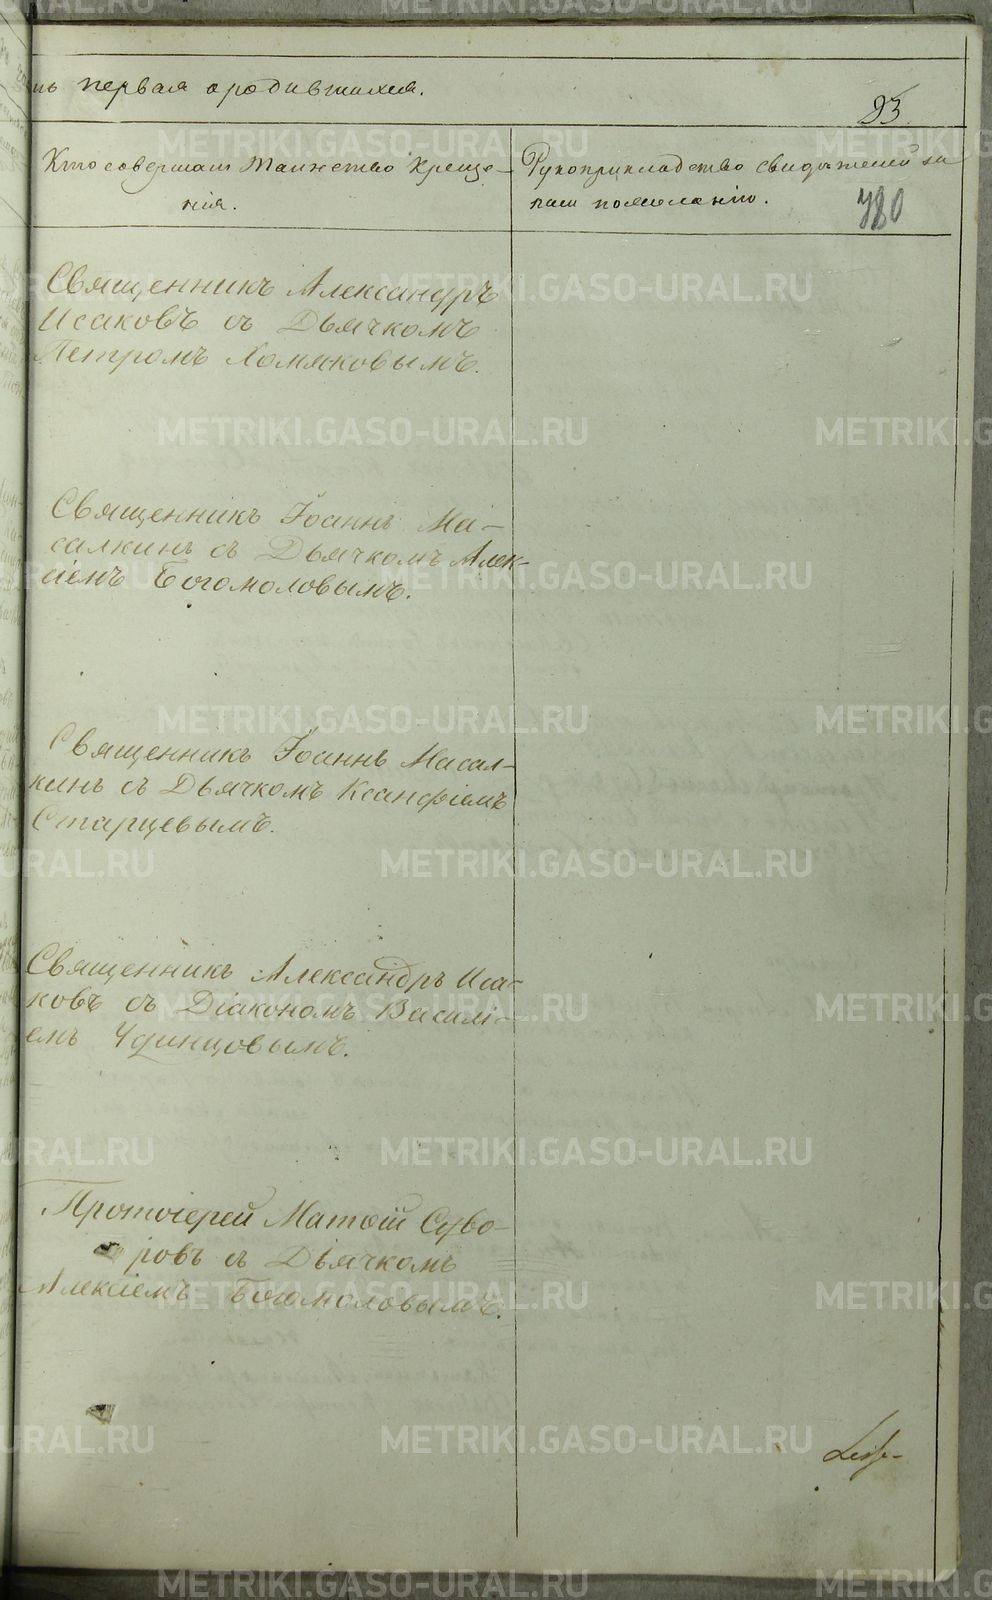 нь первая о родившихся.
93
Кто совершалъ таинство креще-
нія.
Рукоприкладство свидѣтелей за
писи по желанію.
780
Священникъ Александръ
Исаковъ съ Дьячкомъ
Петромъ Хомяковымъ.
Священникъ Іоаннъ Ма-
салкинъ съ Дьячкомъ Алек-
сіемъ Богомоловымъ.
Священникъ Іоаннъ Масал-
кинъ съ Дьячкомъ Ксанфіемъ
Старцевымъ.
Священникъ Александръ Иса-
ковъ съ Діакономъ Василі-
емъ Удинцовымъ.
Протоіерей Матѳій Суво-
ровъ съ Дьячкомъ
Алексіемъ Богомоловымъ.
METRIKI.GASO-URAL.RU